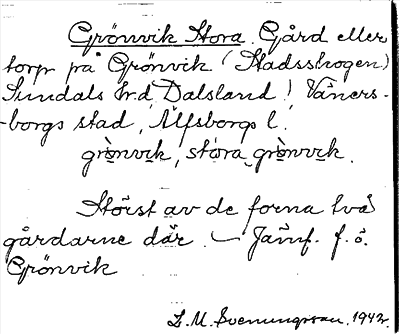 Grönvik Stora. Gård eller
torp på Grönvik (Stadsskogen)
Sundals hrd, Dalsland!, Väners-
-borgs stad, Älfsborgs l.
grònvik, stora grònvik.
Störst av de forna två
gårdarne där. – Jämf. f. ö.
Grönvik
L. M. Svenungsson. 1942.